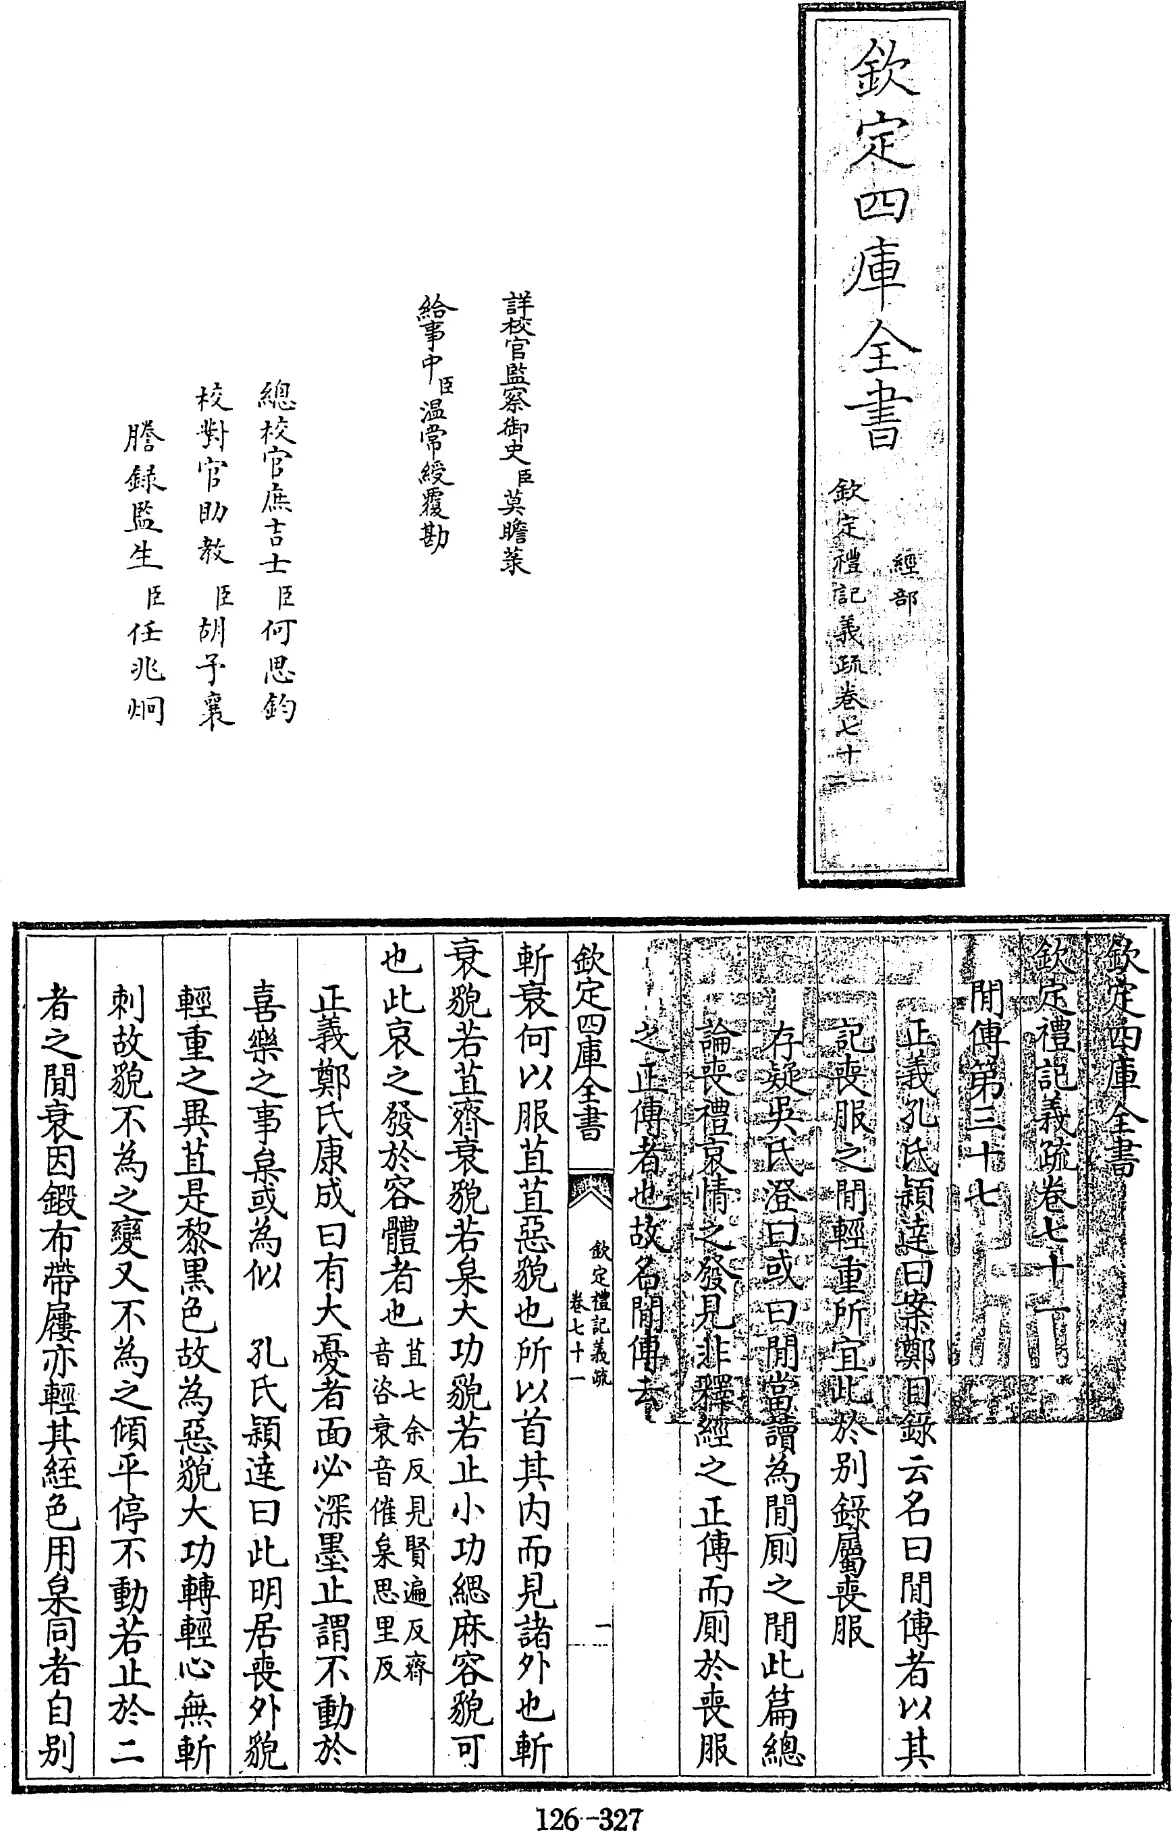 欽定四庫全書
經部
欽定禮記義疏卷七十一
二
詳校官監察御史臣莫瞻菉
給事中臣溫常綬覆勘
總校官庶吉士臣何思鈞
校對官助教臣胡予襄
謄錄監生臣任兆炯
欽定四庫全書
欽定禮記義疏卷七十一
閒傳第三十七
正義孔氏穎達曰案鄭目錄云名曰閒傳者以其
記喪服之閒輕重所宜此於別錄屬喪服
存疑吳氏澄曰或曰閒當讀為閒厠之閒此篇總
論喪禮哀情之發見非釋經之正傳而厠於喪服
之正傳者也故名閒傳云
欽定四庫全書
欽定禮記義疏
卷七十一
一
斬衰何以服苴苴惡貌也所以首其内而見諸外也斬
衰貌若苴齊衰貌若枲大功貌若止小功緦麻容貌可
也此哀之發於容體者也苴七余反見賢遍反齊
音咨衰音催枲思里反
正義鄭氏康成曰有大憂者面必深墨止謂不動於
喜樂之事枲或為似　孔氏穎達曰此明居喪外貌
輕重之異苴是黎黑色故為惡貌大功轉輕心無斬
刺故貌不為之變又不為之傾平停不動若止於二
者之閒衰因鍛布帶屨亦輕其絰色用枲同者自別
126-327